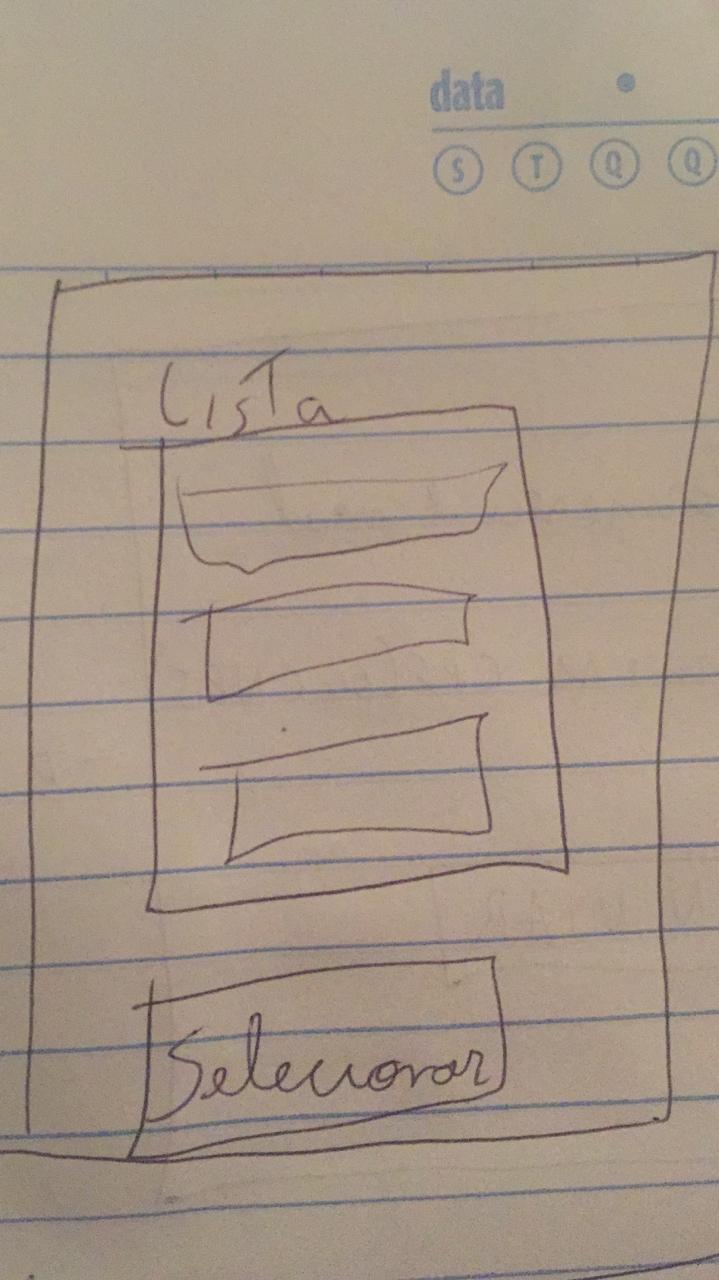 data
S T Q Q
Lista
Selecionar